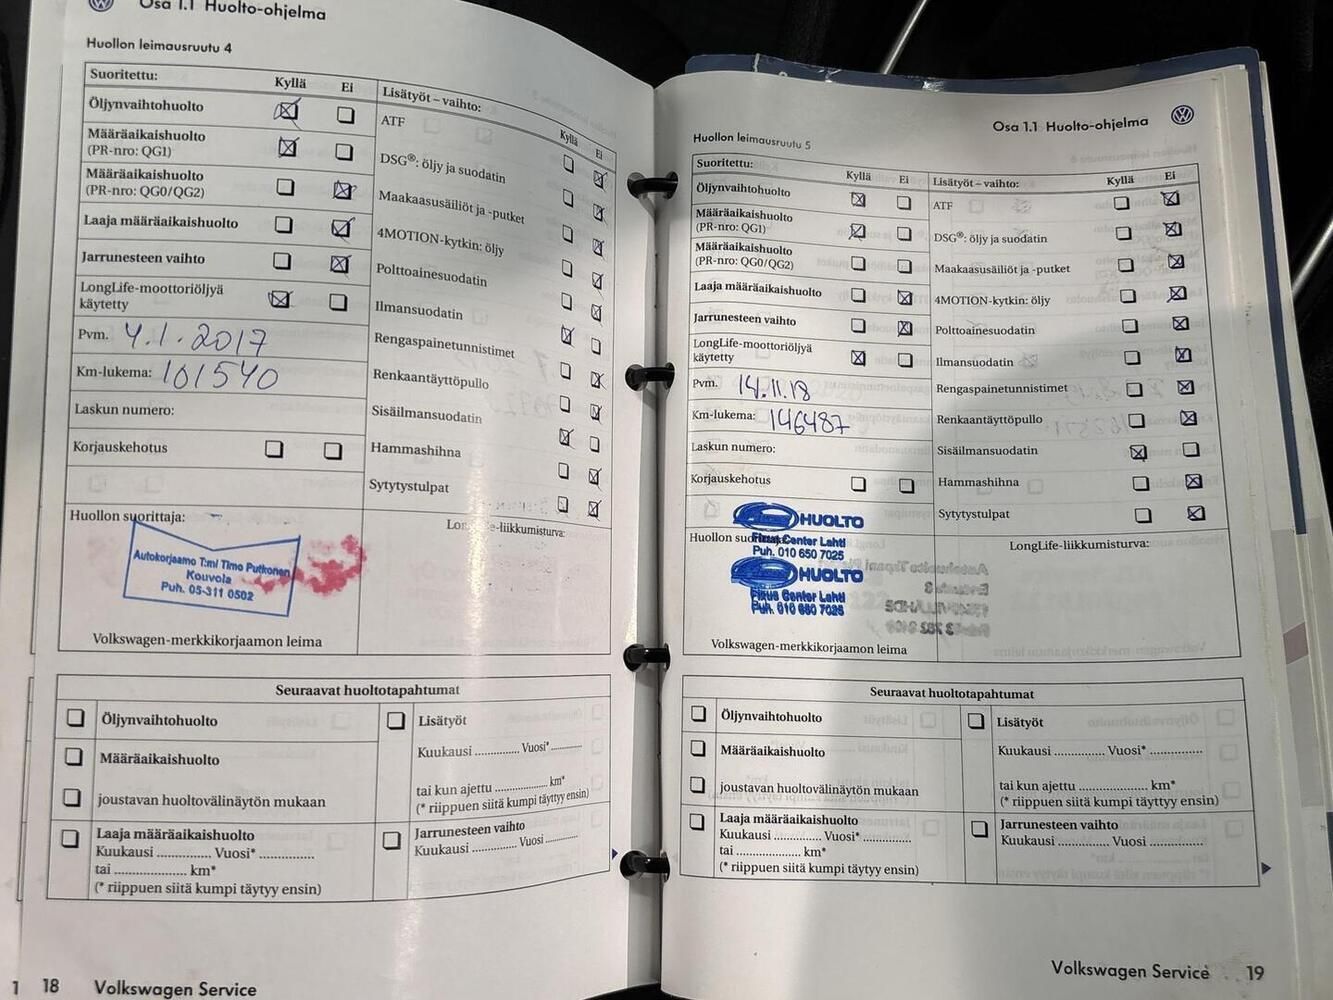 Osa 1.1 Huolto-ohjelma
Huollon leimausruutu 4
Suoritettu: Kyllä Ei
Öljynvaihtohuolto
Määräaikaishuolto
(PR-nro: QG1)
Määräaikaishuolto
(PR-nro: QG0/QG2)
Laaja määräaikaishuolto
Jarrunesteen vaihto
LongLife-moottoriöljyä
käytetty
Pvm. 4.1.2017
Km-lukema: 101540
Laskun numero:
Korjauskehotus
Lisätyöt – vaihto: Kyllä Ei
ATF
DSG®: öljy ja suodatin
Maakaasusäiliöt ja -putket
4MOTION-kytkin: öljy
Polttoainesuodatin
Ilmansuodatin
Rengaspainetunnistimet
Renkaantäyttöpullo
Sisäilmansuodatin
Hammashihna
Sytytystulpat
Huollon suorittaja:
Autokorjaamo T:mi Timo Putkonen
Kouvola
Puh. 05-311 0502
Volkswagen-merkkikorjaamon leima
LongLife-liikkumisturva:
Seuraavat huoltotapahtumat
Öljynvaihtohuolto
Määräaikaishuolto
joustavan huoltovälinäytön mukaan
Laaja määräaikaishuolto
Kuukausi .............. Vuosi* ..............
tai ........................ km*
(* riippuen siitä kumpi täytyy ensin)
Lisätyöt
Kuukausi .............. Vuosi* ..............
tai kun ajettu ..................... km*
(* riippuen siitä kumpi täyttyy ensin)
Jarrunesteen vaihto
Kuukausi .............. Vuosi ..............
1 18 Volkswagen Service
Osa 1.1 Huolto-ohjelma
Huollon leimausruutu 5
Suoritettu: Kyllä Ei
Öljynvaihtohuolto
Määräaikaishuolto
(PR-nro: QG1)
Määräaikaishuolto
(PR-nro: QG0/QG2)
Laaja määräaikaishuolto
Jarrunesteen vaihto
LongLife-moottoriöljyä
käytetty
Pvm. 14.11.18
Km-lukema: 146487
Laskun numero:
Korjauskehotus
Lisätyöt – vaihto: Kyllä Ei
ATF
DSG®: öljy ja suodatin
Maakaasusäiliöt ja -putket
4MOTION-kytkin: öljy
Polttoainesuodatin
Ilmansuodatin
Rengaspainetunnistimet
Renkaantäyttöpullo
Sisäilmansuodatin
Hammashihna
Sytytystulpat
HUOLTO
Huollon
Fixus Center Lahti
Puh. 010 650 7025
HUOLTO
Fixus Center Lahti
Puh. 010 650 7025
Volkswagen-merkkikorjaamon leima
LongLife-liikkumisturva:
Seuraavat huoltotapahtumat
Öljynvaihtohuolto
Määräaikaishuolto
joustavan huoltovälinäytön mukaan
Laaja määräaikaishuolto
Kuukausi .............. Vuosi* ..............
tai ........................ km*
(* riippuen siitä kumpi täytyy ensin)
Lisätyöt
Kuukausi .............. Vuosi* ..............
tai kun ajettu ..................... km*
(* riippuen siitä kumpi täyttyy ensin)
Jarrunesteen vaihto
Kuukausi .............. Vuosi ..............
Volkswagen Service 19